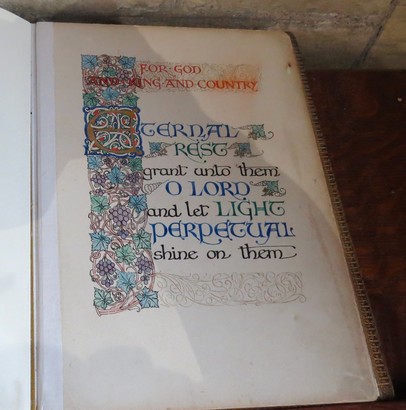 FOR·GOD
AND KING AND COUNTRY
ETERNAL
REST
grant unto them
O LORD
and let LIGHT
PERPETUAL
shine on them